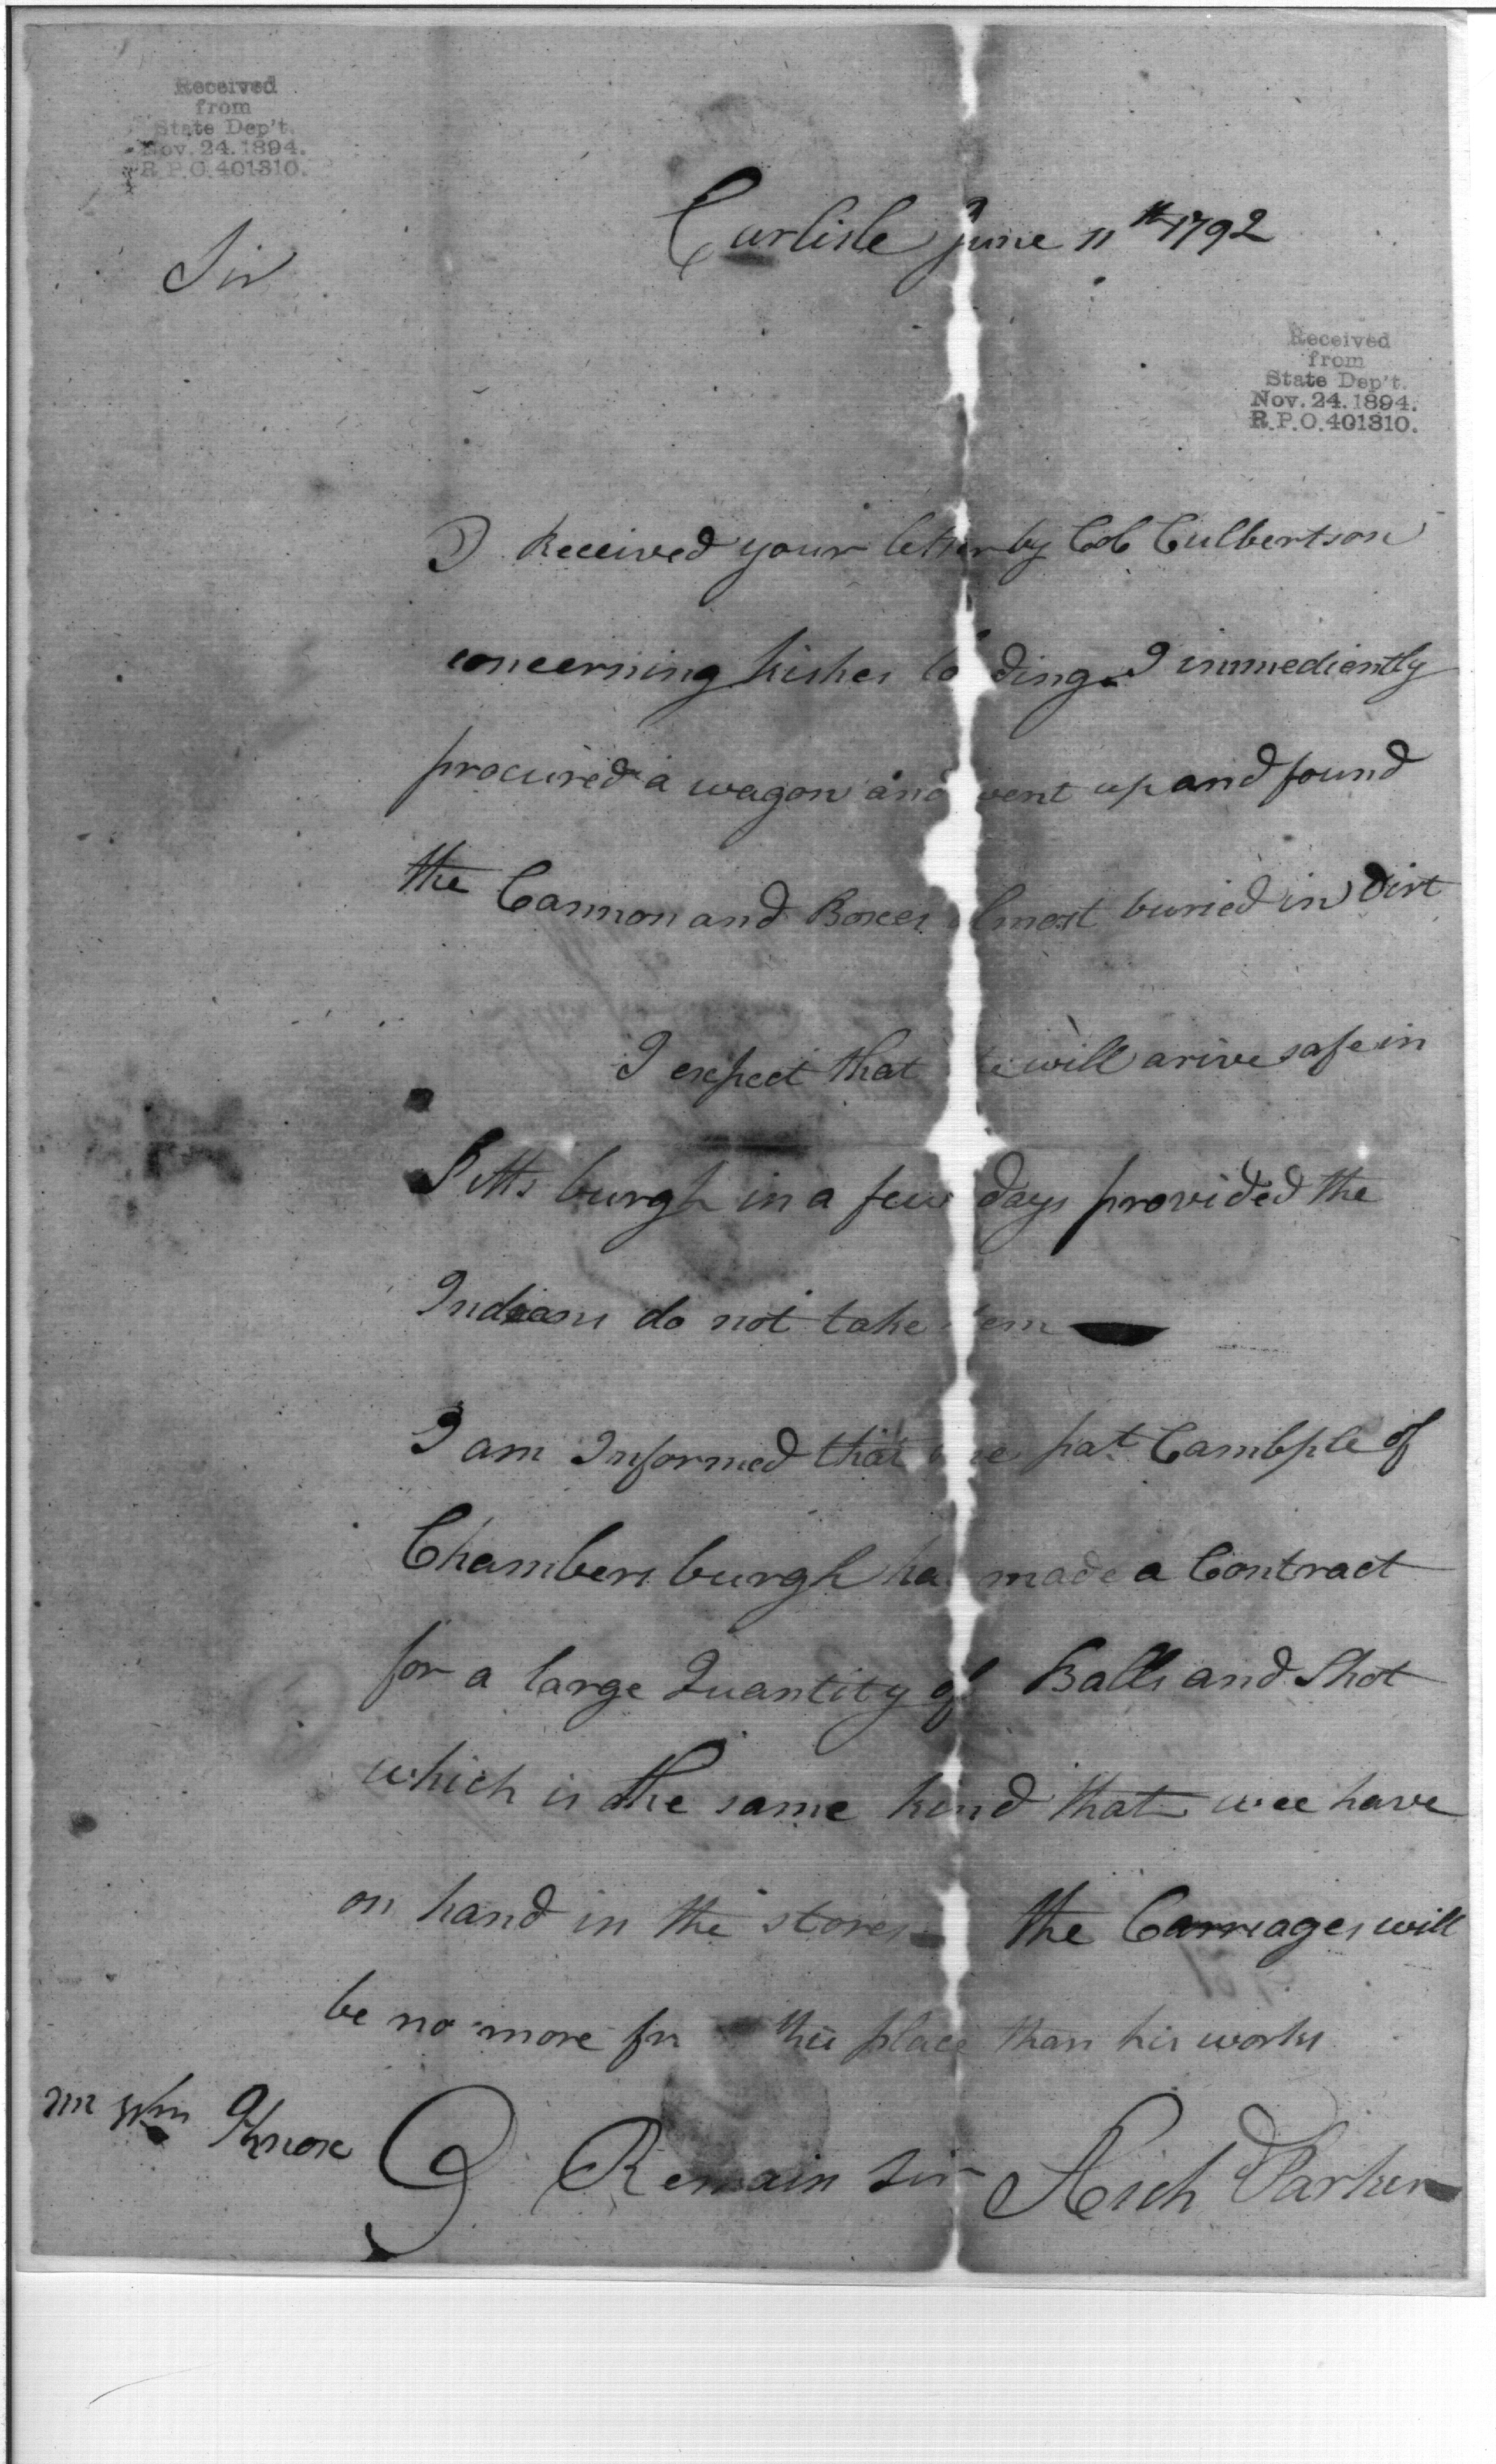 Received
from
State Dep't.
Nov. 24. 1894.
R.P.O. 401310.
Carlisle June 11th 1792
Sir
Received
from
State Dep't.
Nov. 24. 1894.
R.P.O. 401310.
I Received your letter by Col Culbertson
concerning Kishes lo ding I immediently
procured a wagon and went up and found
the Cannon and Boxes almost buried in dirt
I expect that will arive safe in
Pitts burgh in a few days provided the
Indians do not take em
I am Informed that one pat Cambple of
Chambers burgh ha made a Contract
for a large Quantity of Balls and Shot
which is the same kind that wee have
on hand in the stores the Carriages will
be no more this place than his works
Mr Wm Knox
I Remain Sir Rich Parker